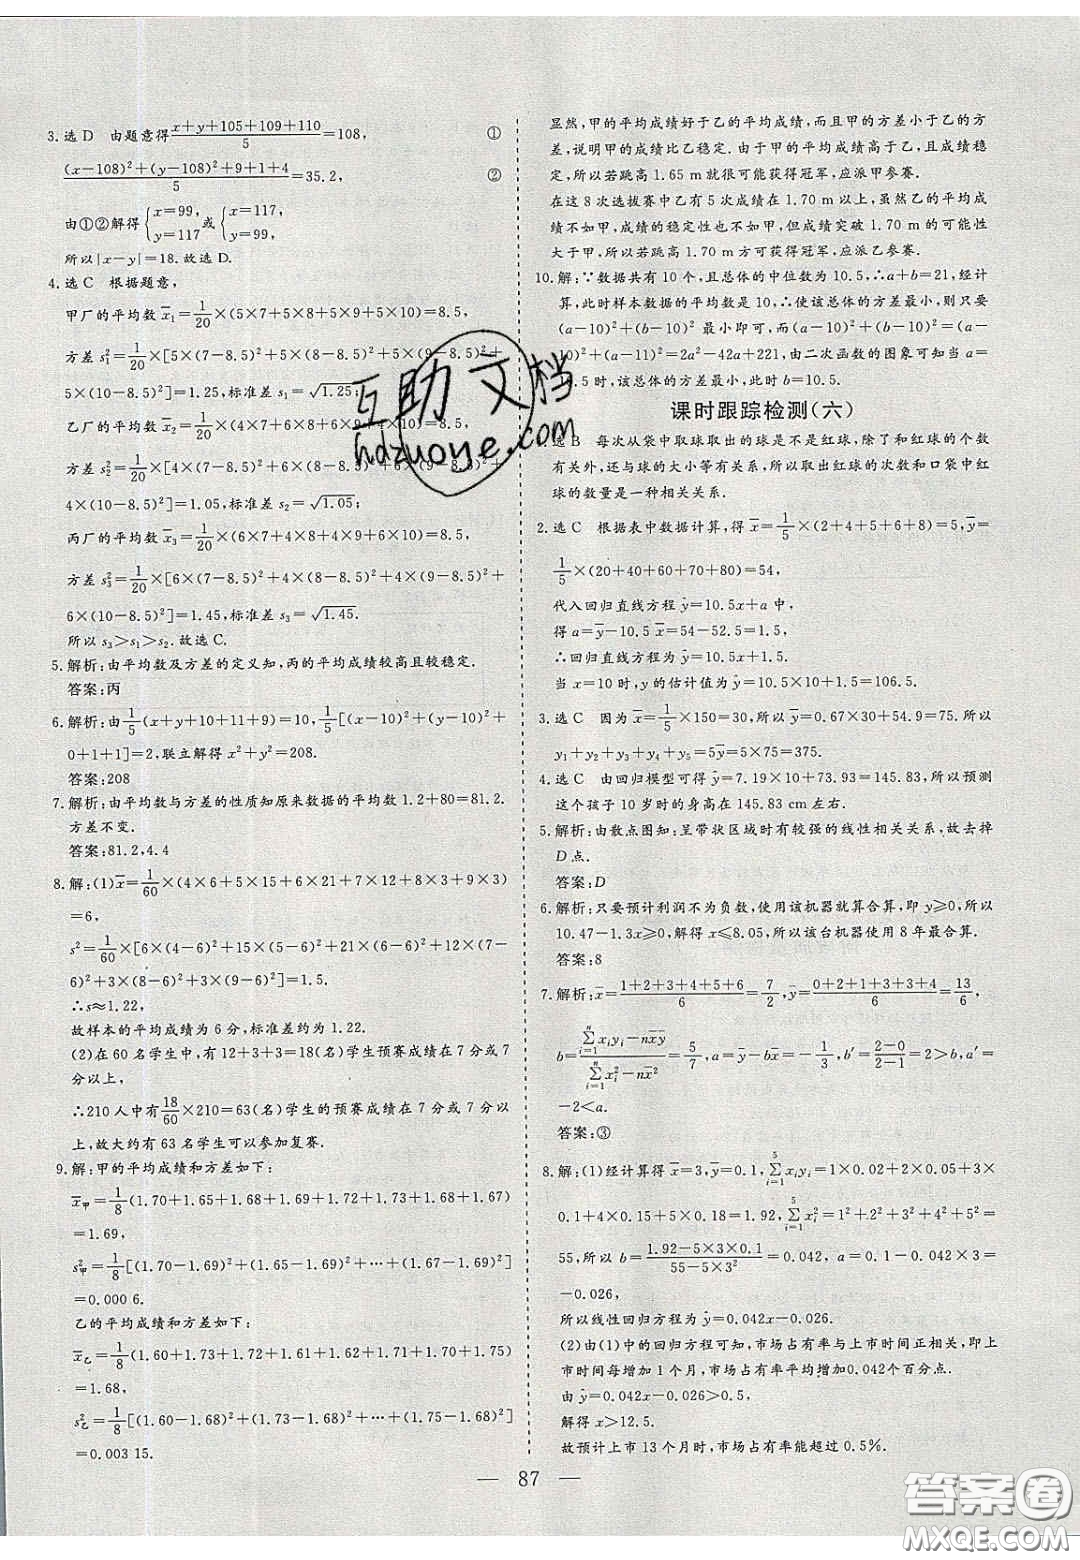 3. 选 D 由题意得(x+y+105+109+110)/5=108, ①
((x-108)²+(y-108)²+9+1+4)/5=35.2, ②
由①②解得{x=99, y=117或{x=117, y=99,
所以|x-y|=18.故选 D.
4. 选 C 根据题意,
甲厂的平均数x̄₁=1/20×(5×7+5×8+5×9+5×10)=8.5,
方差s₁²=1/20×[5×(7-8.5)²+5×(8-8.5)²+5×(9-8.5)²+
5×(10-8.5)²]=1.25,标准差s₁=√1.25;
乙厂的平均数x̄₂=1/20×(4×7+6×8+
方差s₂²=1/20×[4×(7-8.5)²+6×(8-8.5)²+
4×(10-8.5)²]=1.05,标准差s₂=√1.05;
丙厂的平均数x̄₃=1/20×(6×7+4×8+4×9+6×10)=8.5,
方差s₃²=1/20×[6×(7-8.5)²+4×(8-8.5)²+4×(9-8.5)²+
6×(10-8.5)²]=1.45,标准差s₃=√1.45.
所以s₃>s₁>s₂.故选 C.
5. 解析:由平均数及方差的定义知,丙的平均成绩较高且较稳定.
答案:丙
6. 解析:由1/5(x+y+10+11+9)=10,1/5[(x-10)²+(y-10)²+
0+1+1]=2,联立解得x²+y²=208.
答案:208
7. 解析:由平均数与方差的性质知原来数据的平均数1.2+80=81.2.
方差不变.
答案:81.2,4.4
8. 解:(1)x̄=1/60×(4×6+5×15+6×21+7×12+8×3+9×3)
=6,
s²=1/60×[6×(4-6)²+15×(5-6)²+21×(6-6)²+12×(7-
6)²+3×(8-6)²+3×(9-6)²]=1.5.
∴s≈1.22.
故样本的平均成绩为6分,标准差约为1.22.
(2)在60名学生中,有12+3+3=18(名)学生预赛成绩在7分或7
分以上,
∴210人中有18/60×210=63(名)学生的预赛成绩在7分或7分以
上,故大约有63名学生可以参加复赛.
9. 解:甲的平均成绩和方差如下:
x̄甲=1/8(1.70+1.65+1.68+1.69+1.72+1.73+1.68+1.67)
=1.69,
s²甲=1/8[(1.70-1.69)²+(1.65-1.69)²+…+(1.67-1.69)²]
=0.000 6.
乙的平均成绩和方差如下:
x̄乙=1/8(1.60+1.73+1.72+1.61+1.62+1.71+1.70+1.75)
=1.68,
s²乙=1/8[(1.60-1.68)²+(1.73-1.68)²+…+(1.75-1.68)²]
=0.003 15.
显然,甲的平均成绩好于乙的平均成绩,而且甲的方差小于乙的方
差,说明甲的成绩比乙稳定.由于甲的平均成绩高于乙,且成绩稳
定,所以若跳高1.65 m就很可能获得冠军,应派甲参赛.
在这8次选拔赛中乙有5次成绩在1.70 m以上,虽然乙的平均
成绩不如甲,成绩的稳定性也不如甲,但成绩突破1.70 m的可能性
大于甲,所以若跳高1.70 m方可获得冠军,应派乙参赛.
10. 解:∵数据共有10个,且总体的中位数为10.5,∴a+b=21,经计
算,此时样本数据的平均数是10,∴使该总体的方差最小,只要
(a-10)²+(b-10)²最小即可,而(a-10)²+(b-10)²=(a-
10)²+(a-11)²=2a²-42a+221,由二次函数的图象可知当a=
10.5时,该总体的方差最小,此时b=10.5.
课时跟踪检测(六)
1. 选 B 每次从袋中取球取出的球是不是红球,除了和红球的个数
有关外,还与球的大小等有关系,所以取出红球的次数和口袋中红
球的数量是一种相关关系.
2. 选 C 根据表中数据计算,得x̄=1/5×(2+4+5+6+8)=5,ȳ=
1/5×(20+40+60+70+80)=54,
代入回归直线方程ŷ=10.5x+a中,
得a=ȳ-10.5x̄=54-52.5=1.5.
∴回归直线方程为ŷ=10.5x+1.5.
当x=10时,y的估计值为ŷ=10.5×10+1.5=106.5.
3. 选 C 因为x̄=1/5×150=30,所以ȳ=0.67×30+54.9=75.所以
y₁+y₂+y₃+y₄+y₅=5ȳ=5×75=375.
4. 选 C 由回归模型可得y=7.19×10+73.93=145.83,所以预测
这个孩子10岁时的身高在145.83 cm左右.
5. 解析:由散点图知:呈带状区域时有较强的线性相关关系,故去掉
D点.
答案:D
6. 解析:只要预计利润不为负数,使用该机器就算合算,即y≥0,所以
10.47-1.3x≥0,解得x≤8.05,所以该台机器使用8年最合算.
答案:8
7. 解析:x̄=(1+2+3+4+5+6)/6=7/2,ȳ=(0+2+1+3+3+4)/6=13/6,
b=(∑ⁿᵢ₌₁xᵢyᵢ-nx̄ȳ)/(∑ⁿᵢ₌₁xᵢ²-nx̄²)=5/7,a=ȳ-bx̄=-1/3,b′=(2-0)/(2-1)=2>b,a′=
-2<a.
答案:③
8. 解:(1)经计算得x̄=3,ȳ=0.1,∑⁵ᵢ₌₁xᵢyᵢ=1×0.02+2×0.05+3×
0.1+4×0.15+5×0.18=1.92,∑⁵ᵢ₌₁xᵢ²=1²+2²+3²+4²+5²=
55,所以b=(1.92-5×3×0.1)/(55-5×3²)=0.042,a=0.1-0.042×3=
-0.026,
所以线性回归方程为ŷ=0.042x-0.026.
(2)由(1)中的回归方程可知,市场占有率与上市时间正相关,即上
市时间每增加1个月,市场占有率平均增加0.042个百分点.
由ŷ=0.042x-0.026>0.5,
解得x>12.5.
故预计上市13个月时,市场占有率能超过0.5%.
— 87 —
互助文档
hdzuoye.com
答案圈
MXQE.COM